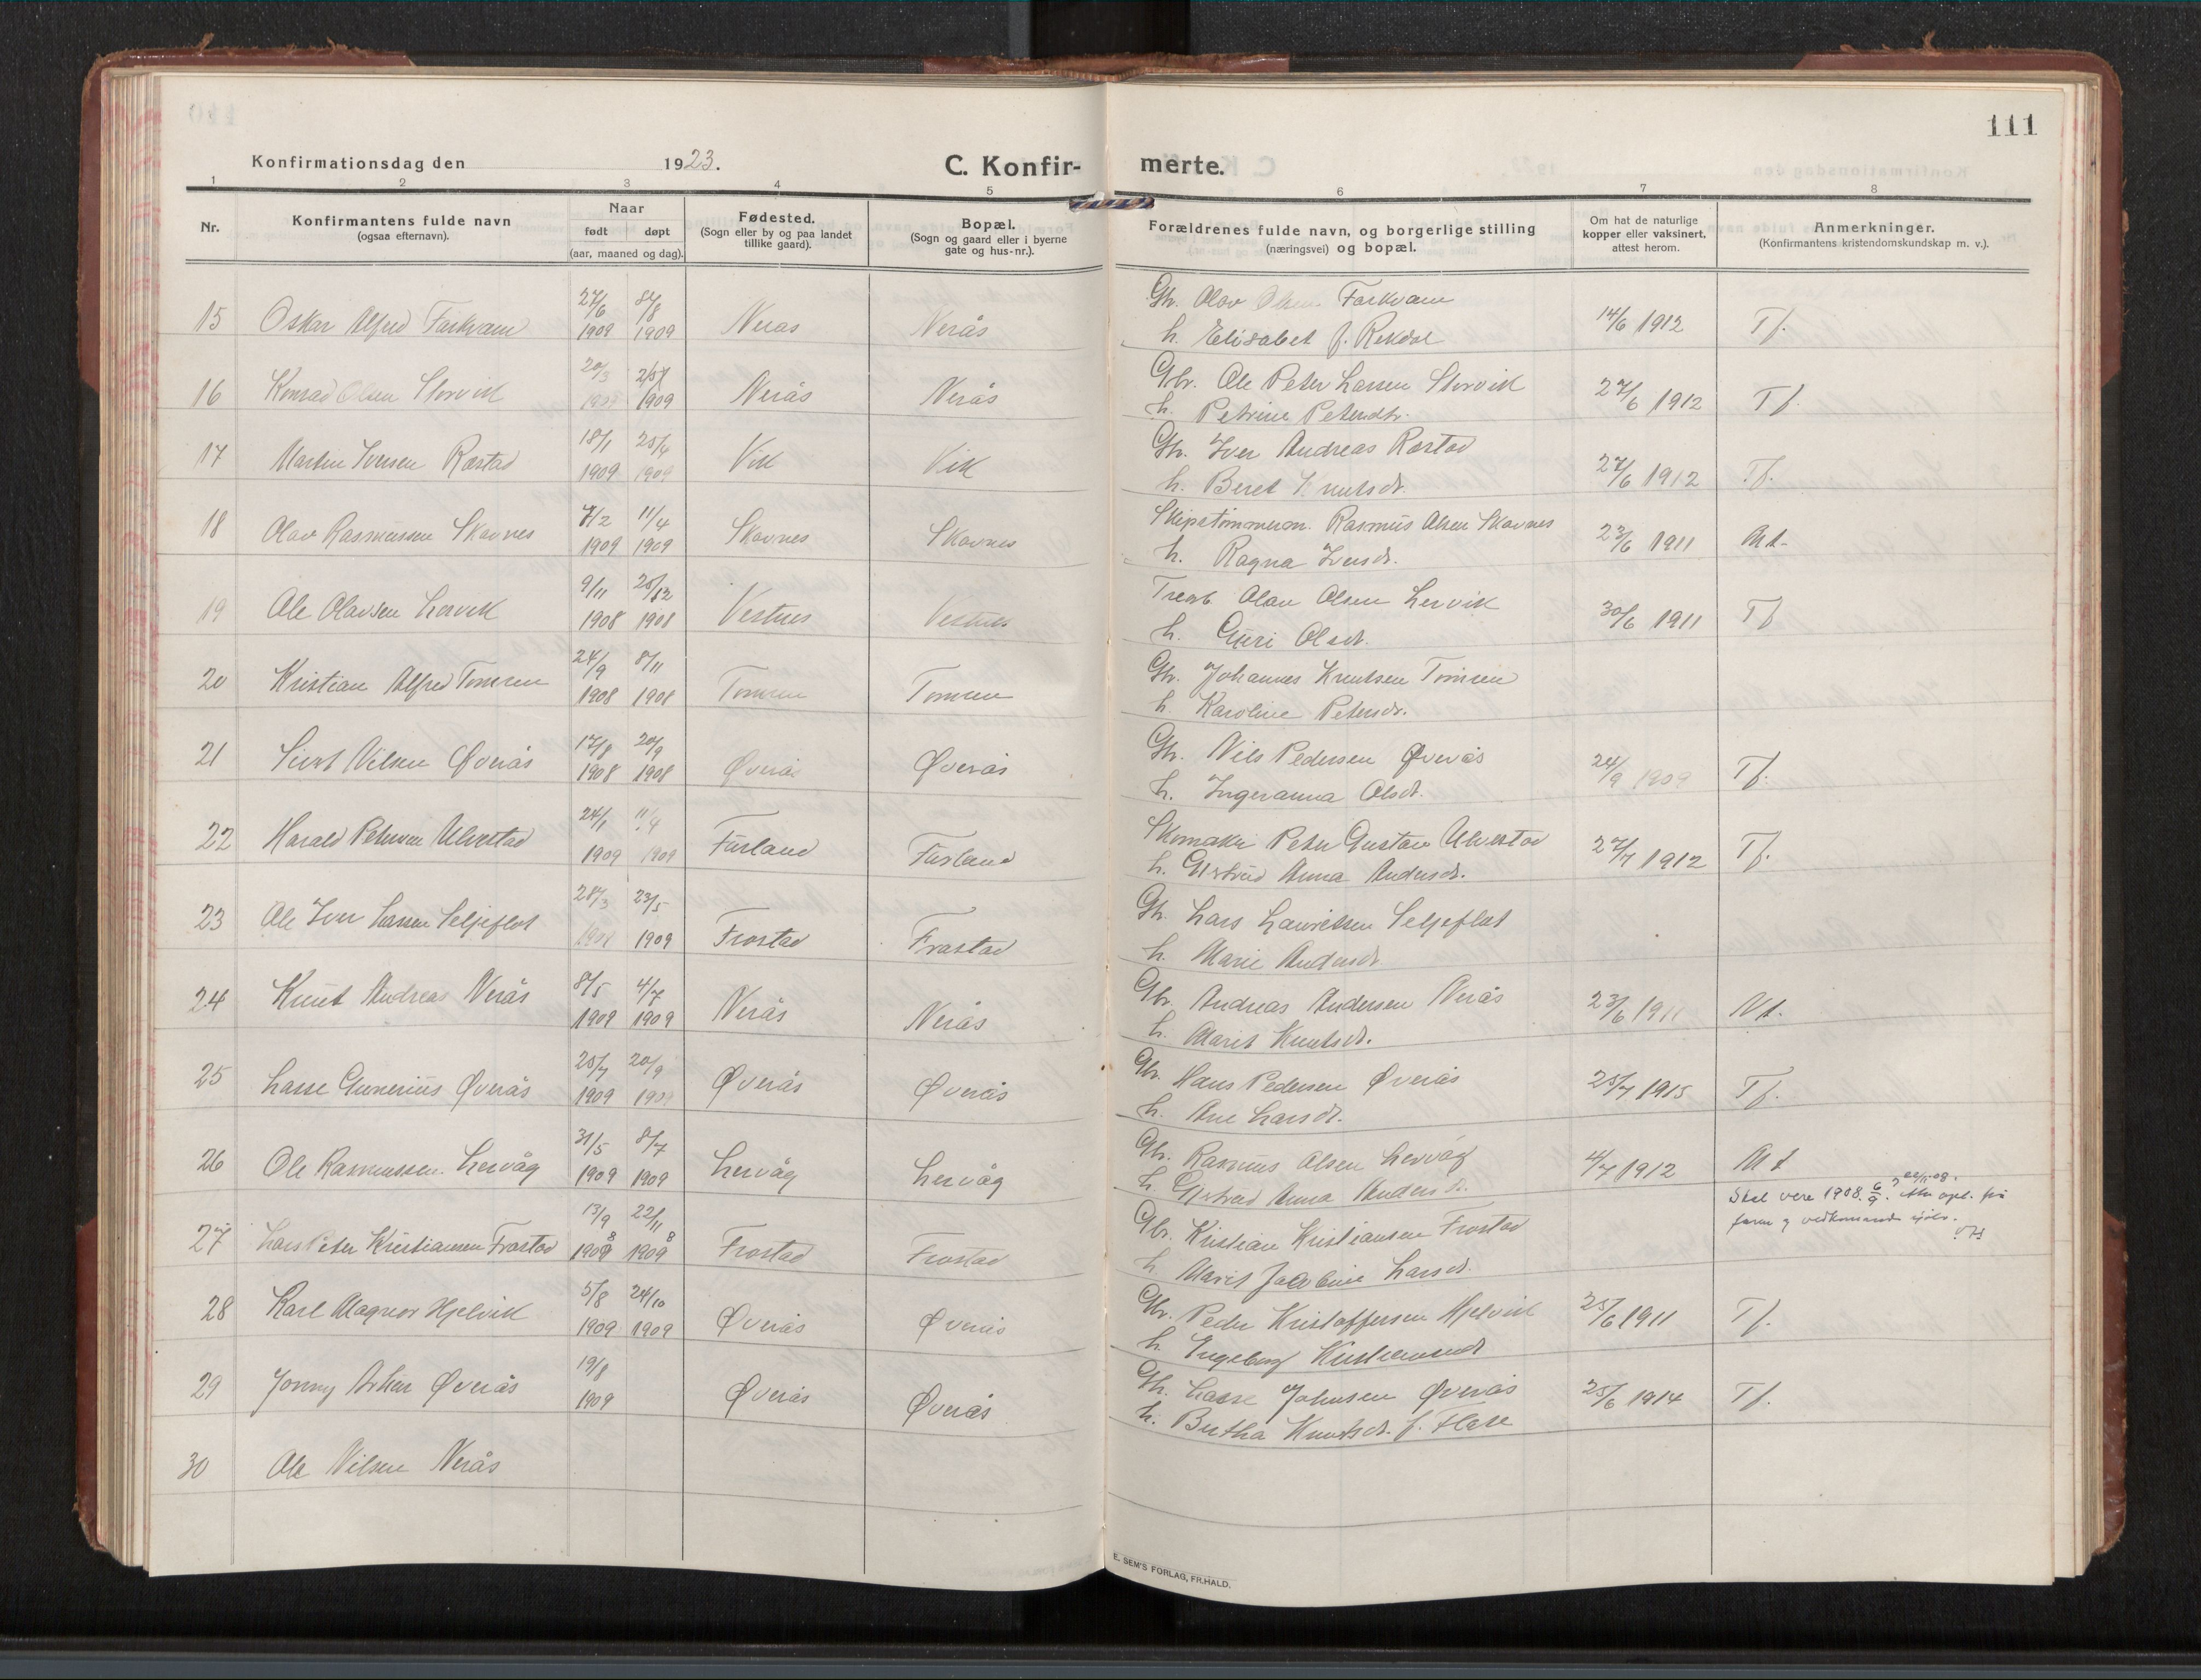 111
Konfirmationsdag den 1923.
C. Konfir-
merte.
1 2 3 4 5 6 7 8
Nr.
Konfirmantens fulde navn
(ogsaa efternavn).
Naar
født døpt
(aar, maaned og dag).
Fødested.
(Sogn eller by og paa landet
tillike gaard).
Bopæl.
(Sogn og gaard eller i byerne
gate og hus-nr.).
Forældrenes fulde navn, og borgerlige stilling
(næringsvei) og bopæl.
Om hat de naturlige
kopper eller vaksinert,
attest herom.
Anmerkninger.
(Konfirmantens kristendomskundskap m. v.).
27/6 8/8 Gbr. Olav Olsen Farkvam
15 Oskar Alfred Farkvam 1909 1909 Nerås Nerås 14/6 1912 Tf.
h. Elisabet f. Rekdal
20/3 Gbr. Ole Peter Larsen Storvik
16 Konrad Olsen Storvik 1909 1909 Nerås Nerås 27/6 1912 Tf.
h. Petrine Petersdtr.
18/1 25/4 Gbr. Iver Andreas Rastad
17 Martin Iversen Rastad 1909 1909 Vik Vik 27/6 1912 Tf.
h. Beret Knutsdt.
7/2 11/4 Skipstømmerm. Rasmus Olsen Skavnes
18 Olav Rasmussen Skavnes 1909 1909 Skavnes Skavnes 23/6 1911 Mt.
h. Ragna Iversdt.
9/11 25/12 Olav Olsen Lervik
19 Ole Olavsen Lervik 1908 1908 Vestnes Vestnes 30/6 1911 Tf
h. Guri Olsdt.
24/9 8/11 Gbr. Johannes Knutsen Tomren
20 Kristian Alfred Tomren 1908 1908 Tomren Tomren
h. Karoline Petersdt.
17/8 20/9 Gbr. Nils Pedersen Øverås
21 Sivert Nilsen Øverås 1908 1908 Øverås Øverås 24/9 1909 Tf.
h. Ingeranna Olsdt.
24/1 11/4 Skomaker Peter Gustav Ulvestad
22 Harald Petersen Ulvestad 1909 1909 Furland Furland 27/7 1912 Tf.
h. Gjertrud Anna Andersdt.
28/3 23/5 Gbr. Lars Lauritsen Seljeflot
23 Ole Iver Larsen Seljeflot 1909 1909 Frostad Frostad
h. Marie Andersdt.
8/5 4/7 Gbr. Andreas Andersen Nerås
24 Knut Andreas Nerås 1909 1909 Nerås Nerås 23/6 1911 Mt.
h. Marit Knutsdt.
25/7 20/9 Gbr. Hans Pedersen Øverås
25 Lasse Gunerius Øverås 1909 1909 Øverås Øverås 25/7 1915 Tf.
h. Ane Larsdt.
31/5 8/7 Gbr. Rasmus Olsen Lervåg
26 Ole Rasmussen Lervåg 1909 1909 Lervåg Lervåg 4/7 1912 Mt
h. Gjertrud Anna Andersdt.
Skal vere 1908. 6/9. etter opl. frå
faren og vedkomande sjølv.
13/9 22/11 Gbr. Kristian Kristiansen Frostad
27 Lars Peter Kristiansen Frostad 1908 1908 Frostad Frostad
h. Marit Jakobine Larsdt.
5/8 24/10 Gbr. Peder Kristoffersen Hjelvik
28 Karl Magnor Hjelvik 1909 1909 Øverås Øverås 25/6 1911 Tf.
h. Ingeborg Kristiansdt
19/8 Gbr. Lasse Johnsen Øverås
29 Jonny Arthur Øverås 1909 Øverås Øverås 25/6 1914 Tf.
h. Bertha Knutsdt. f. Flate
30 Ole Nilsen Nerås
E. SEM'S FORLAG, FR.HALD.